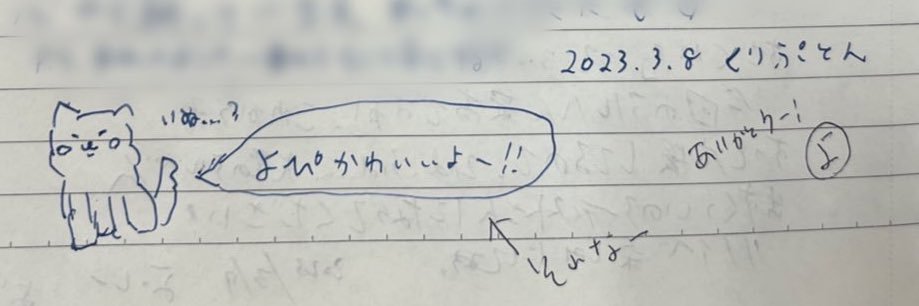 2023.3.8 くりぷとん
いぬ...?
よぴかわいいよー!!
ありがとうー!
よ